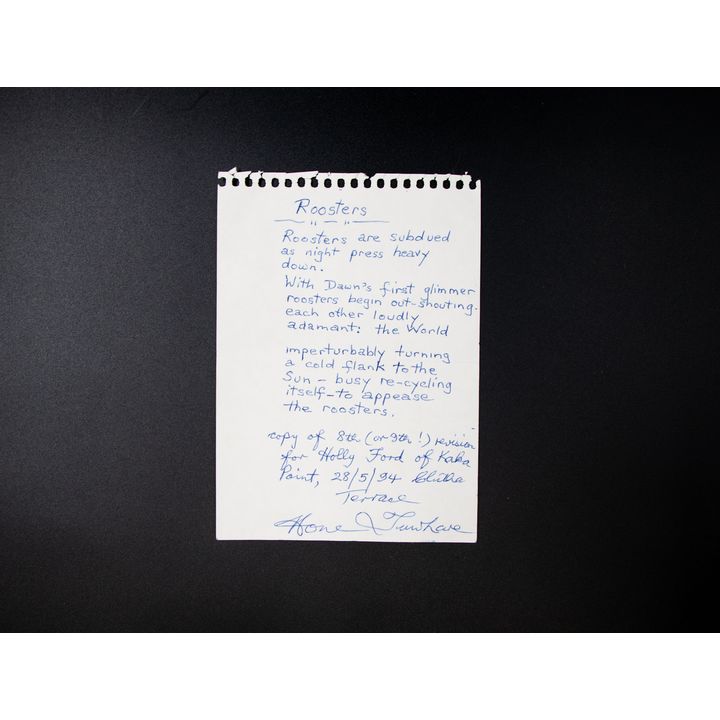 Roosters
Roosters are subdued
as night press heavy
down.
With Dawn's first glimmer
roosters begin out-shouting
each other loudly
adamant: the World
imperturbably turning
a cold flank to the
Sun – busy re-cycling
itself – to appease
the roosters.
copy of 8th (or 9th!) revision
for Holly Ford of Kaka
Point, 28/5/94 Clutha
Terrace
Hone Tuwhare